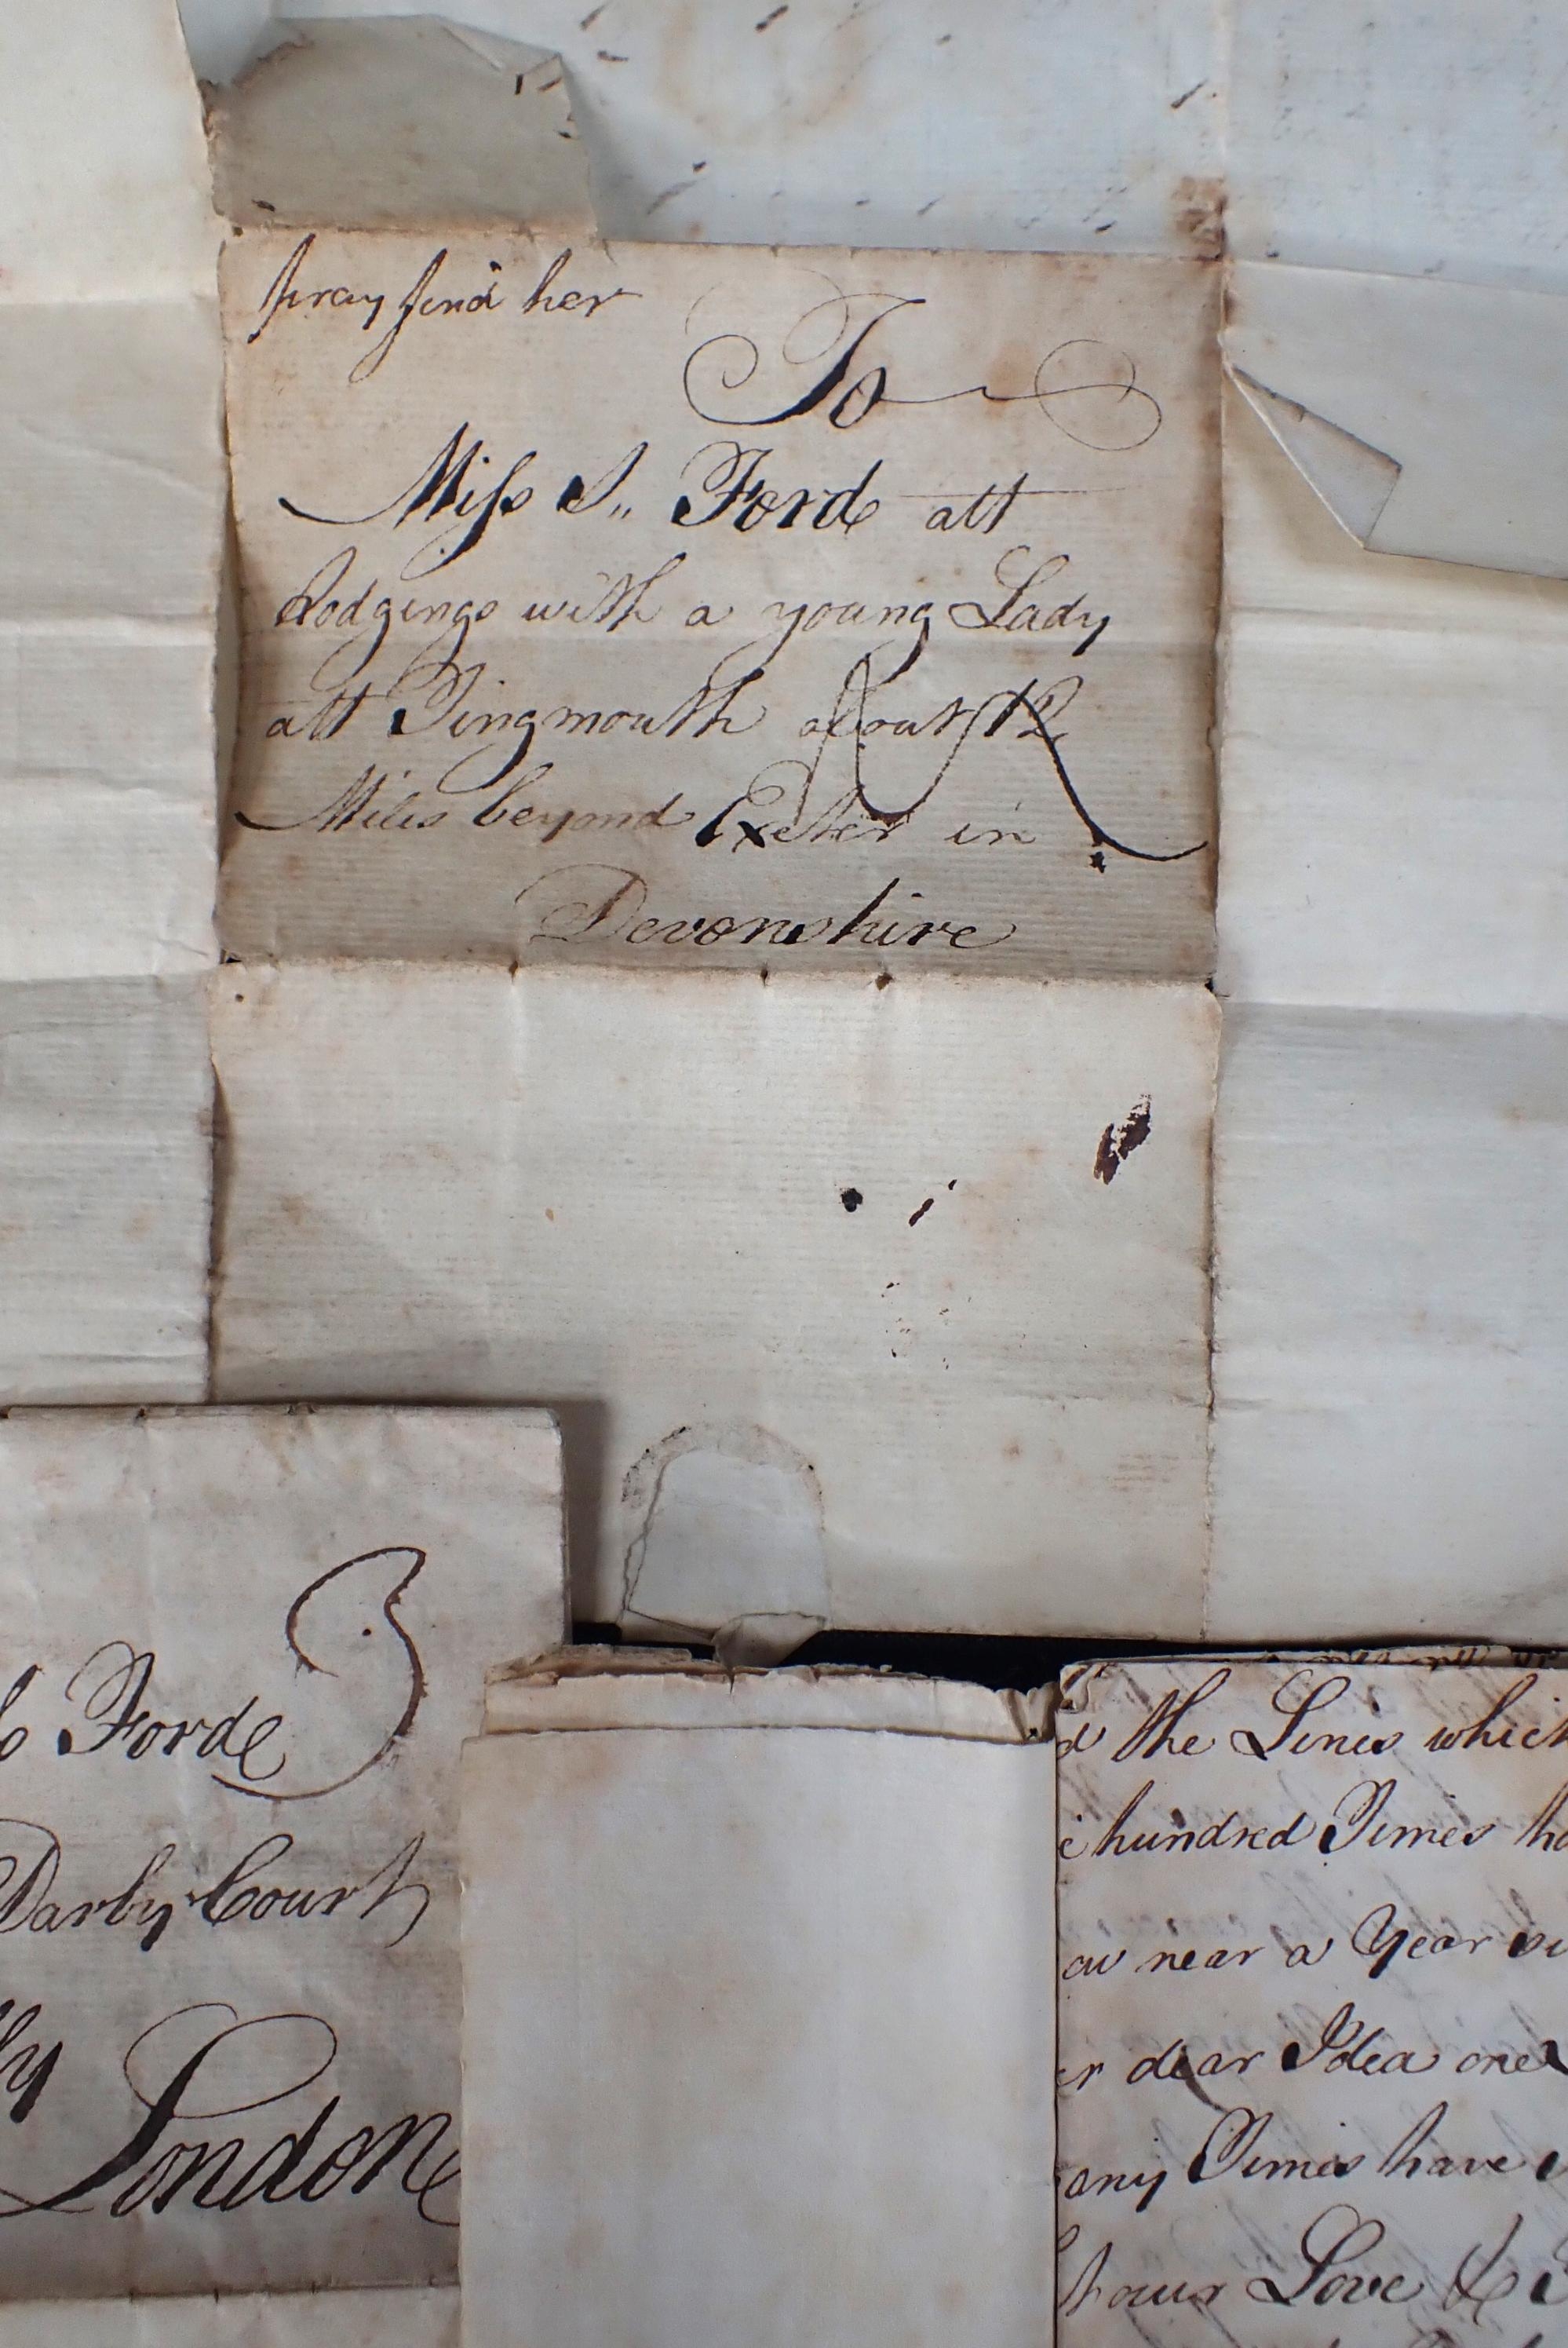 pray find her
To
Miſs S,, Ford att
Lodgings with a young Lady
att Tingmouth about 12
Miles beyond Exeter in
Devonshire
3
Ford
Darby Court
London
the Lines which
hundred Times
near a Year
dear Idea
Times have
Love &